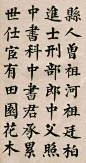 縣人曾祖河祖廷柏
進士刑部郎中父照
中書科中書君承累
世仕宦有田園花木